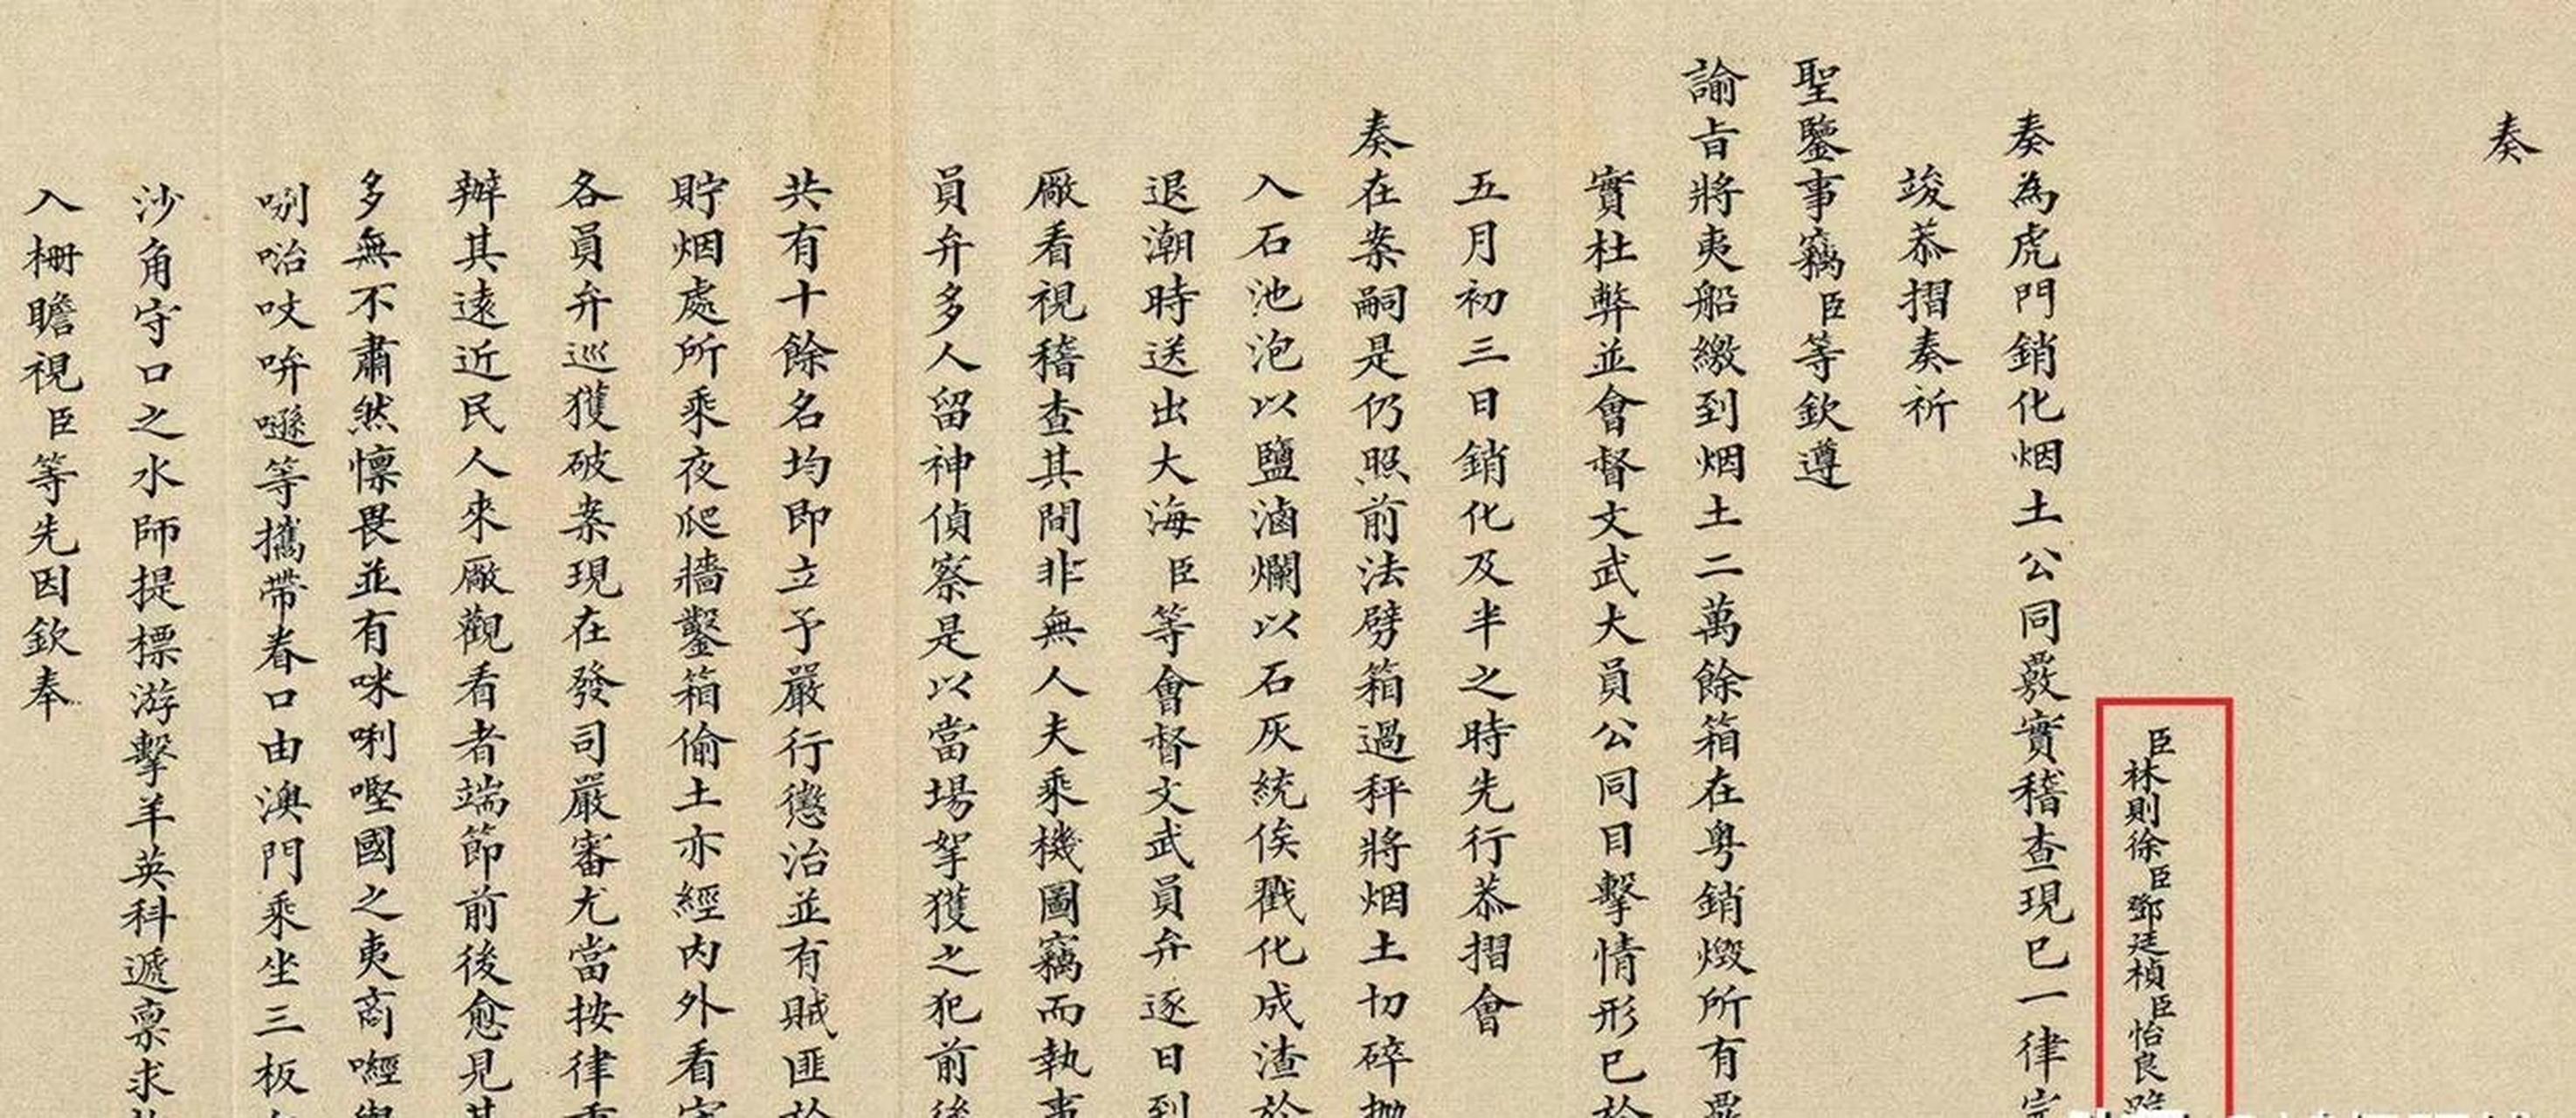 奏
臣林則徐臣鄧廷楨臣怡良跪
奏為虎門銷化烟土公同覈實稽查現已一律完
竣恭摺奏祈
聖鑒事竊臣等欽遵
諭旨將夷船繳到烟土二萬餘箱在粵銷燬所有覈
實杜弊並會督文武大員公同目擊情形已於
五月初三日銷化及半之時先行恭摺會
奏在案嗣是仍照前法劈箱過秤將烟土切碎拋
入石池泡以鹽滷爛以石灰統俟戳化成渣於
退潮時送出大海臣等會督文武員弁逐日到
廠看視稽查其間非無人夫乘機圖竊而執事
員弁多人留神偵察是以當場拏獲之犯前後
共有十餘名均即立予嚴行懲治並有賊匪於
貯烟處所乘夜爬牆鑿箱偷土亦經內外看守
各員弁巡獲破案現在發司嚴審尤當按律重
辦其遠近民人來廠觀看者端節前後愈見其
多無不肅然懍畏並有咪唎㗴國之夷商𠼤
咧㗖㕲哶𠿢等攜帶眷口由澳門乘坐三板
沙角守口之水師提標游擊羊英科遞稟求
入柵瞻視臣等先因欽奉